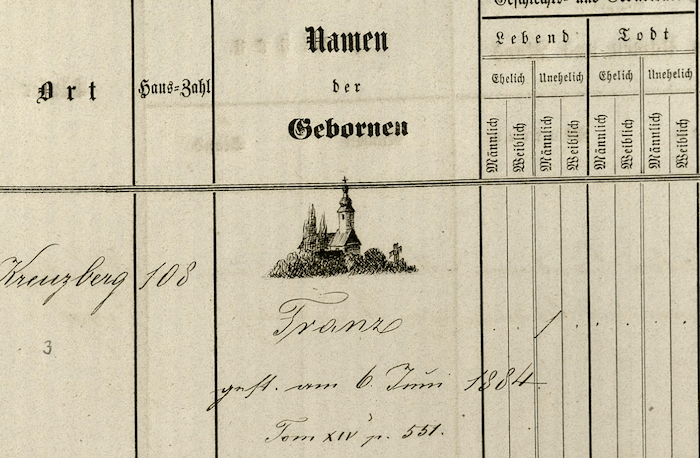 Geschlechts- und
Ort
Haus-Zahl
Namen
der
Gebornen
Lebend
Todt
Ehelich
Unehelich
Ehelich
Unehelich
Männlich
Weiblich
Männlich
Weiblich
Männlich
Weiblich
Männlich
Weiblich
Kreuzberg 108
3
Franz
gest. am 6. Juni 1884
Tom XIV p. 551.